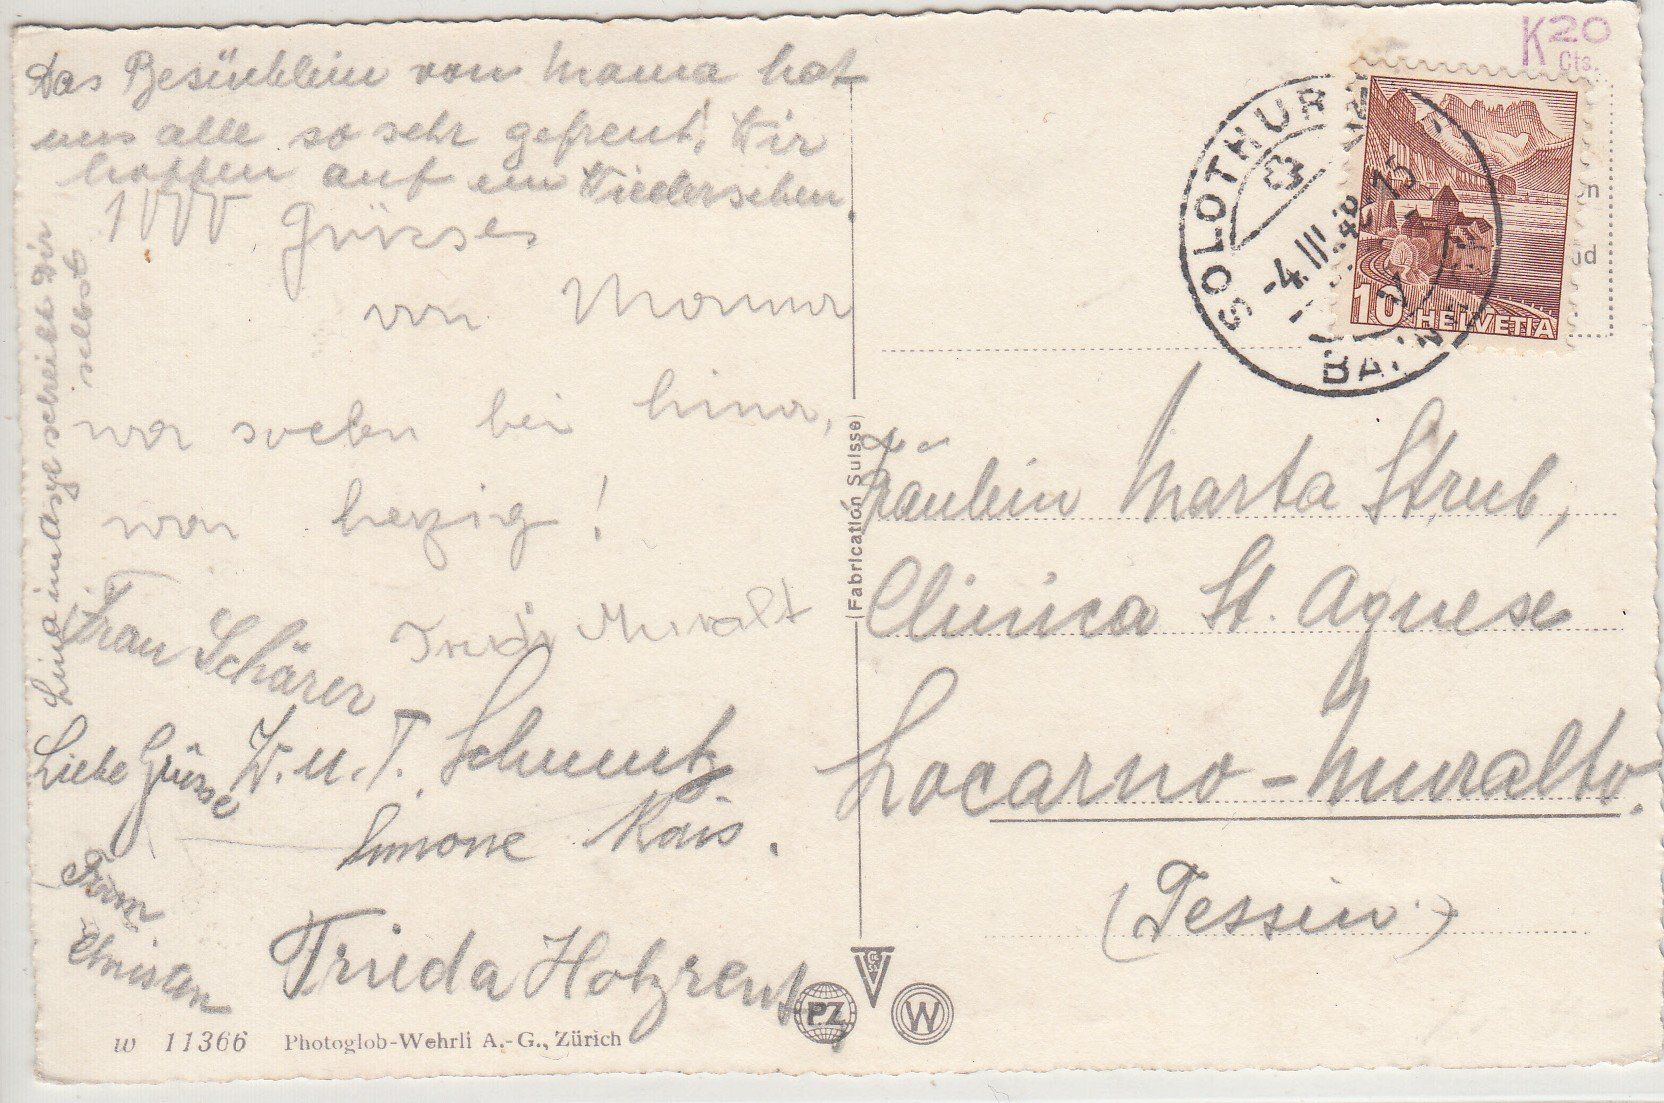 Das Besüchlein von Mama hat
uns alle so sehr gefreut! Wir
hoffen auf ein Wiedersehen.
1000 Grüsse
von Mamma
war soeben bei Lina,
war herzig!
Lina im Asyl schreibt Dir
selbst
Frau Schärer
Muralt
Liebe Grüsse W. u. T. Schmutz
Simone Kais.
Christen
Frieda Holzreut
w 11366 Photoglob-Wehrli A.-G., Zürich
(Fabrication Suisse)
PZ
W
K 20
Cts.
SOLOTHURN
-4.III.48-15
10 HELVETIA
Fräulein Marta Strub,
Clinica St. Agnese
Locarno-Muralto.
(Tessin)